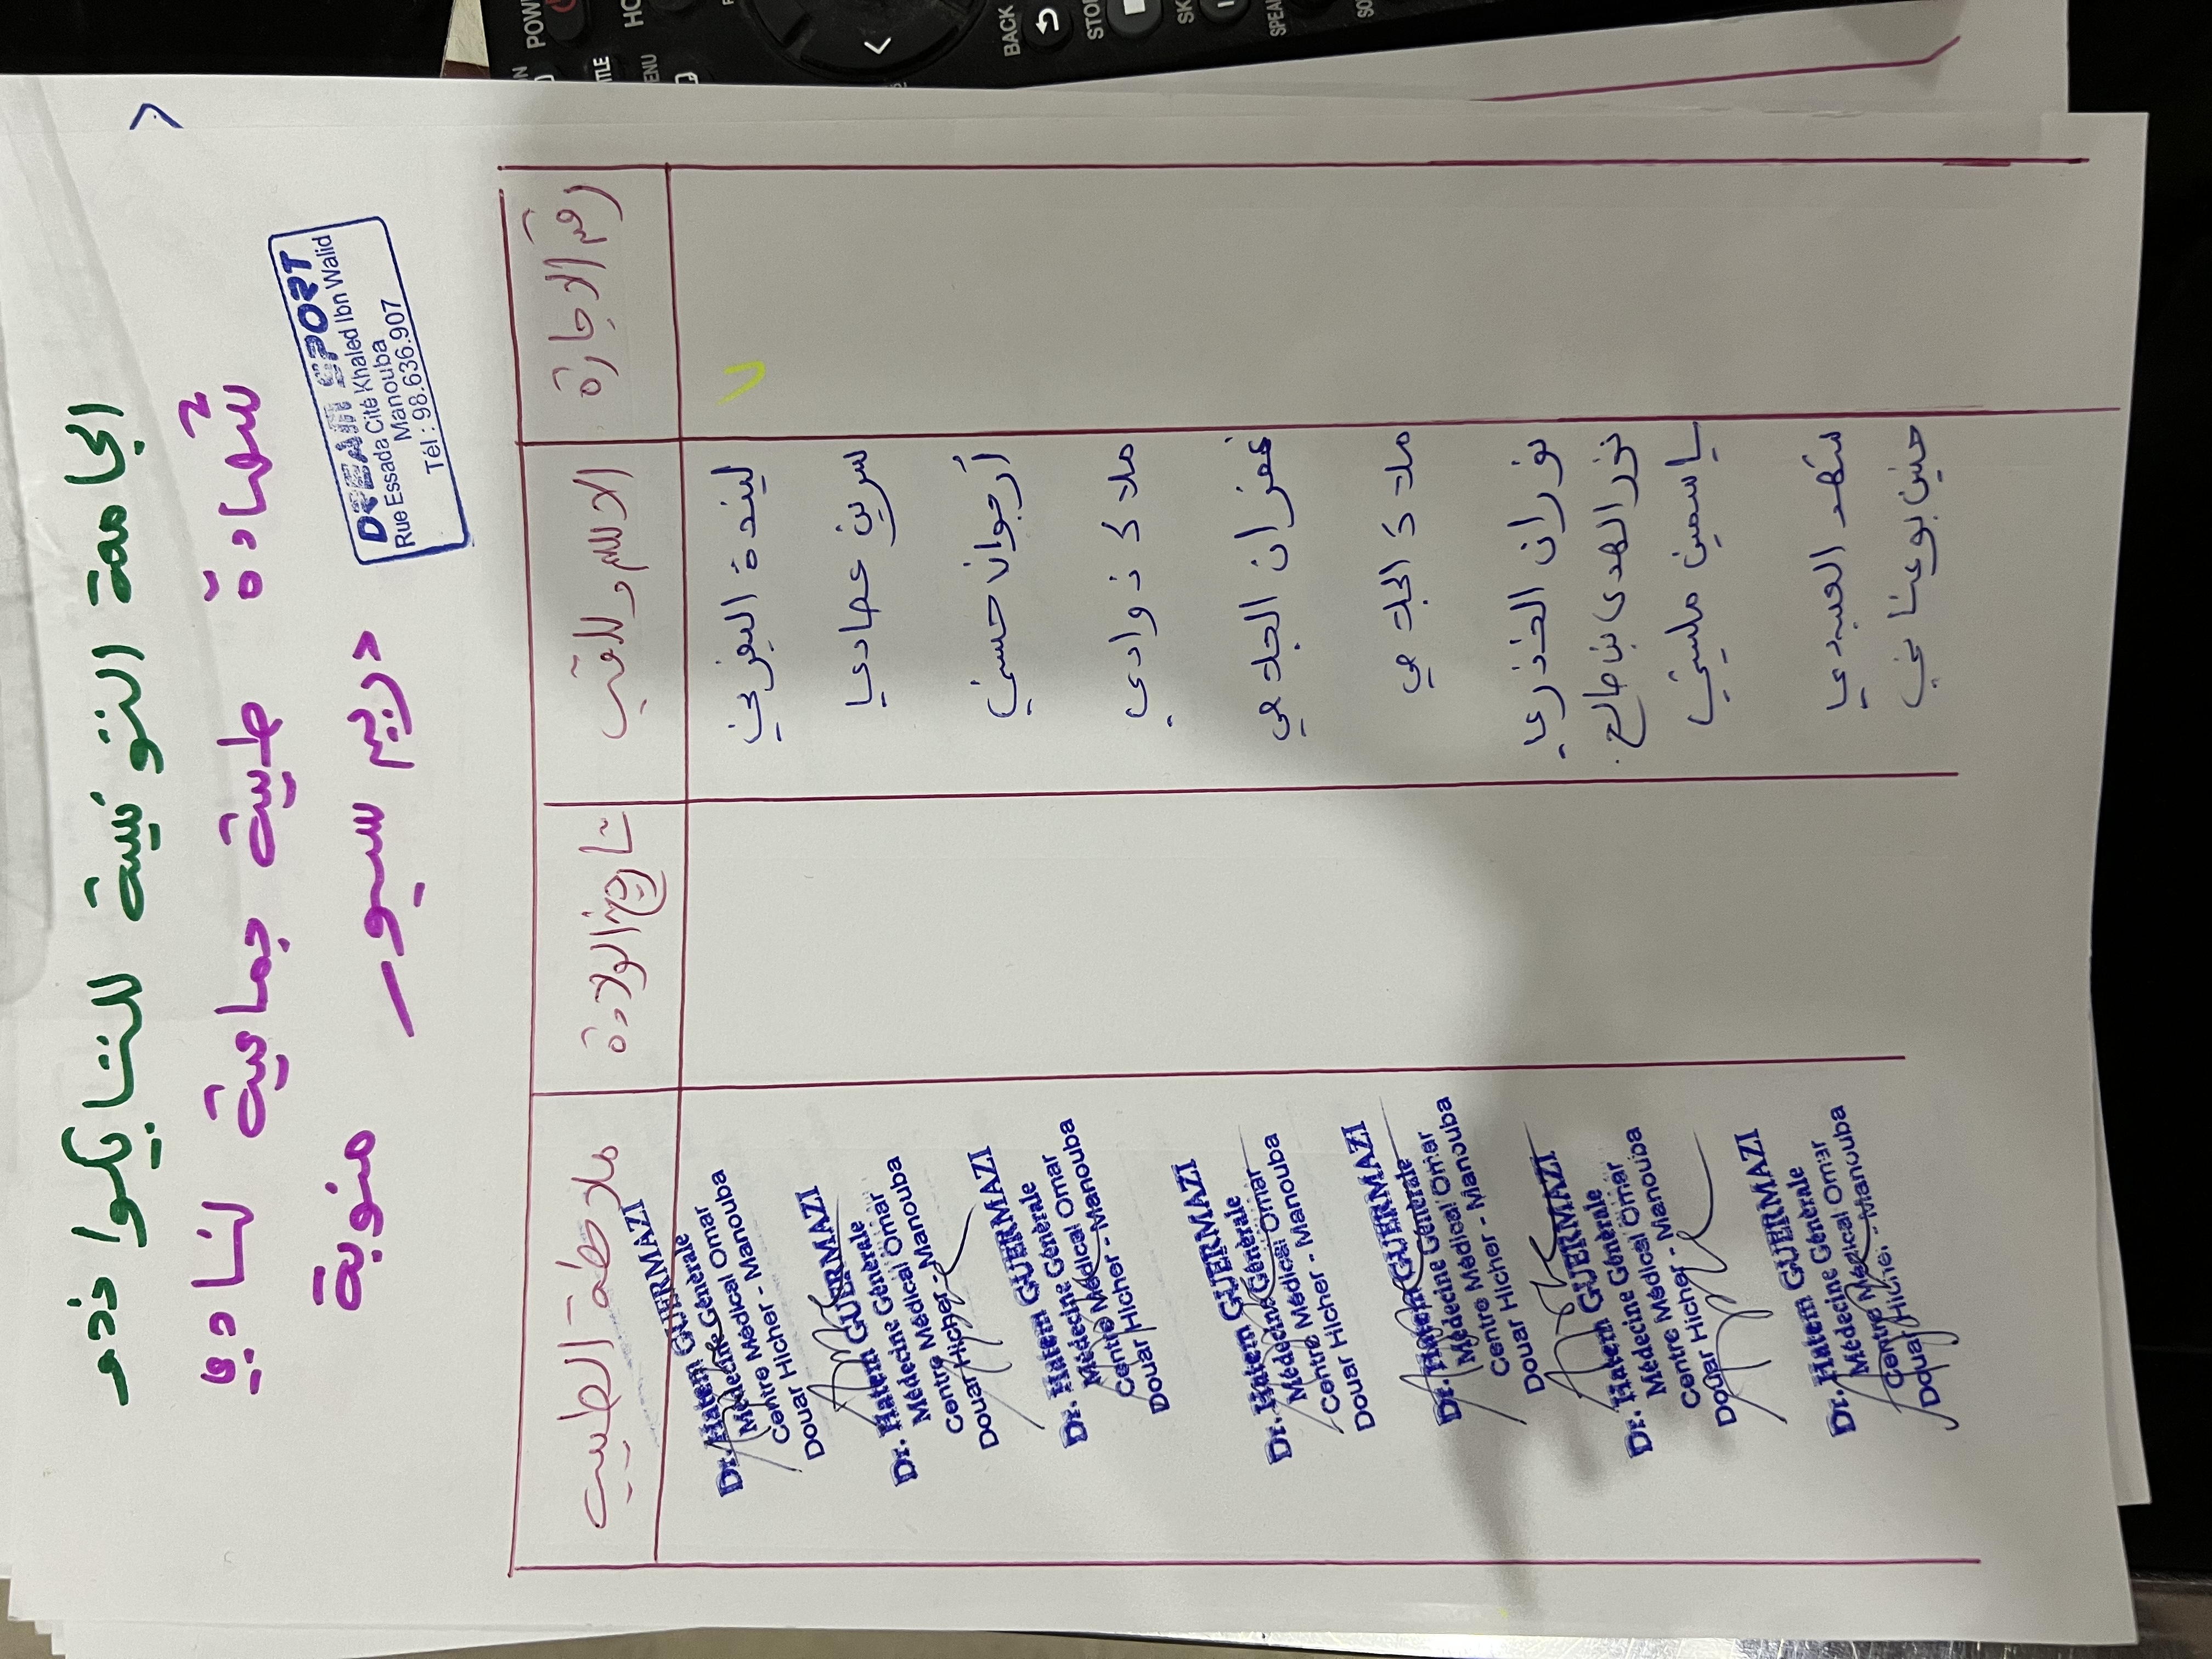 الجامعة التونسية للتايكوا ندو
شهادة طبية جماعية لنادي
دريم سبور منوبة
DREAM SPORT
Rue Essada Cité Khaled Ibn Walid
Manouba
Tél : 98.636.907
رقم الاجازة
الاسم و اللقب
تاريخ الولادة
ملاحظة الطبيب
ليندة اليفرني
سرين عمادي
أرجوان حسني
ملاك ذوادي
غفران الجدعي
ملاك الجدعي
نوران الخذري
نور الهدى بنصالح
ياسمين مليتي
شهد العبيدي
حنين بوعناني
GUERMAZI
Dr. Hatem GUERMAZI
Médecine Générale
Centre Médical Omar
Douar Hicher - Manouba
Dr. Hatem GUERMAZI
Médecine Générale
Centre Médical Omar
Douar Hicher - Manouba
Dr. Hatem GUERMAZI
Médecine Générale
Centre Médical Omar
Douar Hicher - Manouba
Dr. Hatem GUERMAZI
Médecine Générale
Centre Médical Omar
Douar Hicher - Manouba
Dr. Hatem GUERMAZI
Médecine Générale
Centre Médical Omar
Douar Hicher - Manouba
Dr. Hatem GUERMAZI
Médecine Générale
Centre Médical Omar
Douar Hicher - Manouba
Dr. Hatem GUERMAZI
Médecine Générale
Centre Médical Omar
Douar Hicher - Manouba
POWER
BACK
STOP